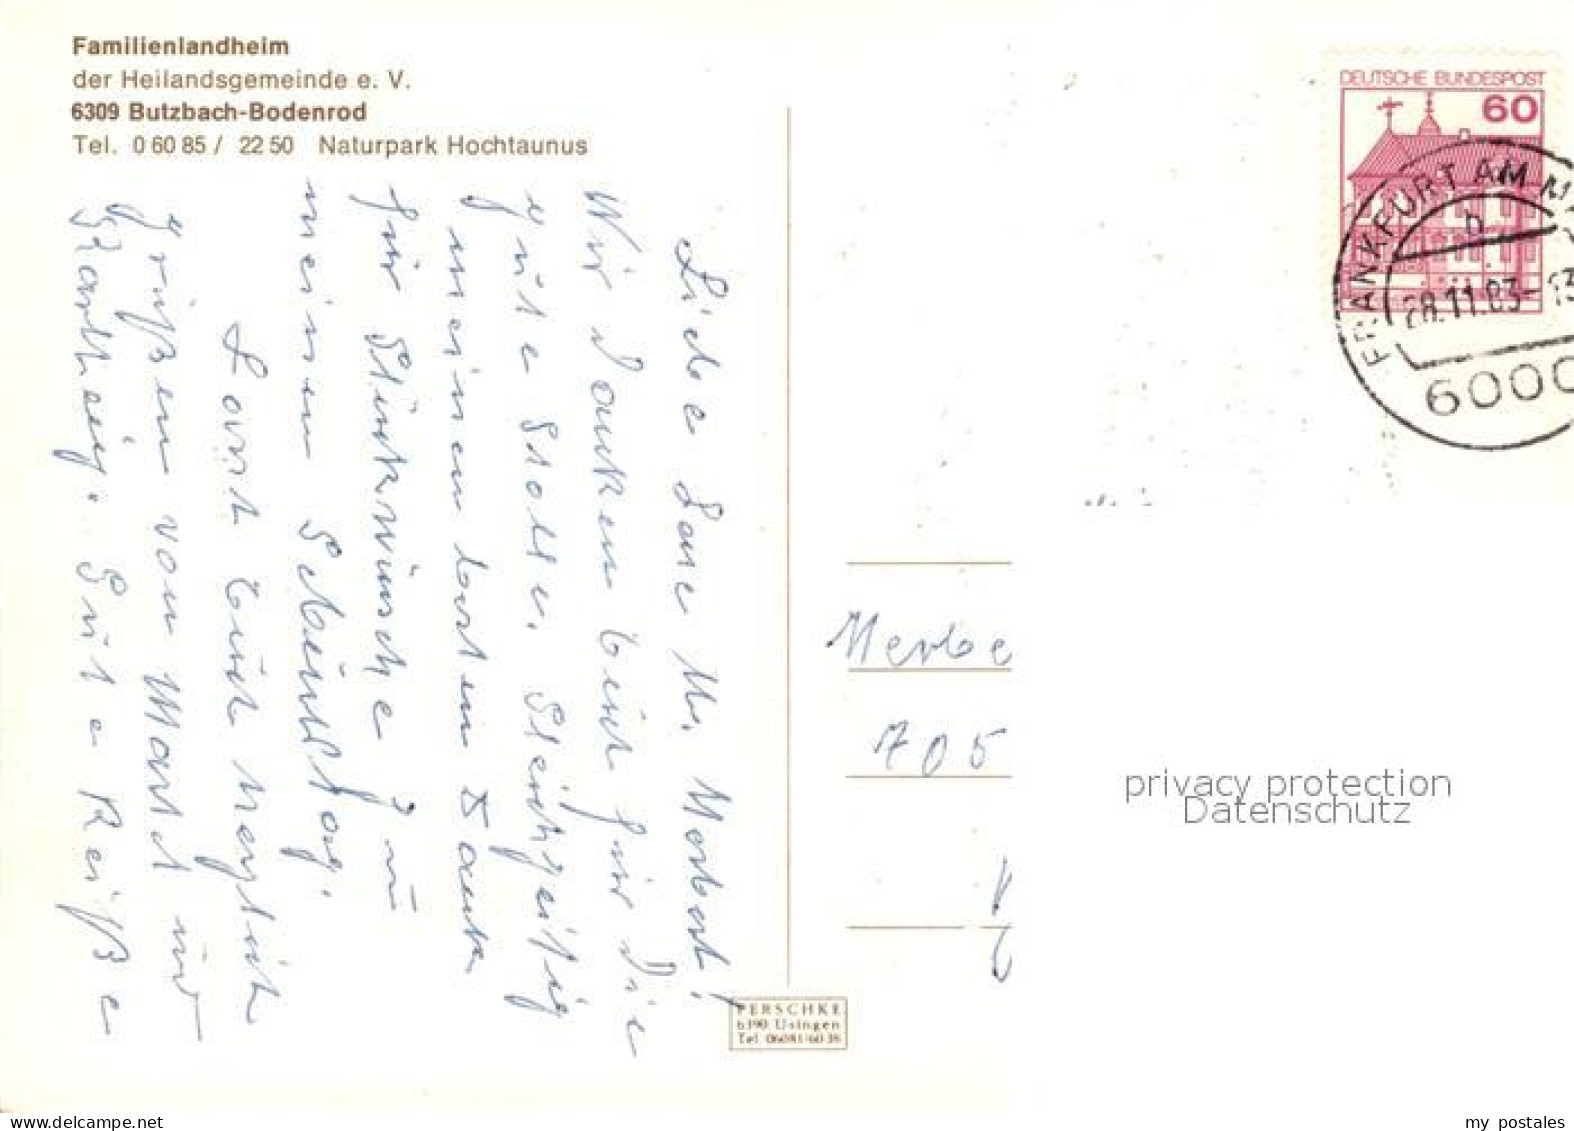 Familienlandheim
der Heilandsgemeinde e. V.
6309 Butzbach-Bodenrod
Tel. 0 60 85 / 22 50 Naturpark Hochtaunus
Liebe Lore u. Norbert!
Wir danken Euch für die
gute Stolle. Gleichzeitig
meinen besten Dank
für Glückwünsche zu
meinem Geburtstag.
Lasst Euch herzlich
grüßen von und
Gute Reiße
DEUTSCHE BUNDESPOST
60
FRANKFURT AM M
b
28.11.83-13
6000
705
PERSCHKE
6390 Usingen
Tel 06081/60 38
privacy protection
Datenschutz
www.delcampe.net
my postales